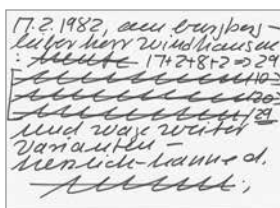 17.2.1982, am burgberg-
lieber herr windhausen-
: heute 17+2+8+2=>29
/10-
/20-
/29
und wage weiter
varianten-
herzlich-hanne d.